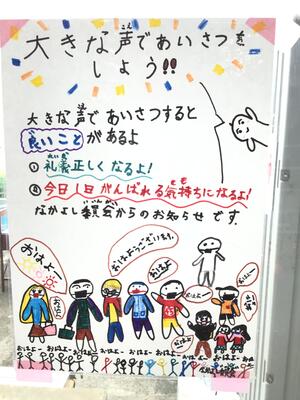 大きな声であいさつを
こえ
しよう!!
大きな声であいさつすると
良いことがあるよ
① 礼義正しくなるよ!
② 今日1日がんばれる気持ちになるよ!
なかよし委員会からのお知らせです。
おはよー
おはようございます。
おはよ
おはよー
おはよー
おはよ
おはよー おはよー おはよー おはよー